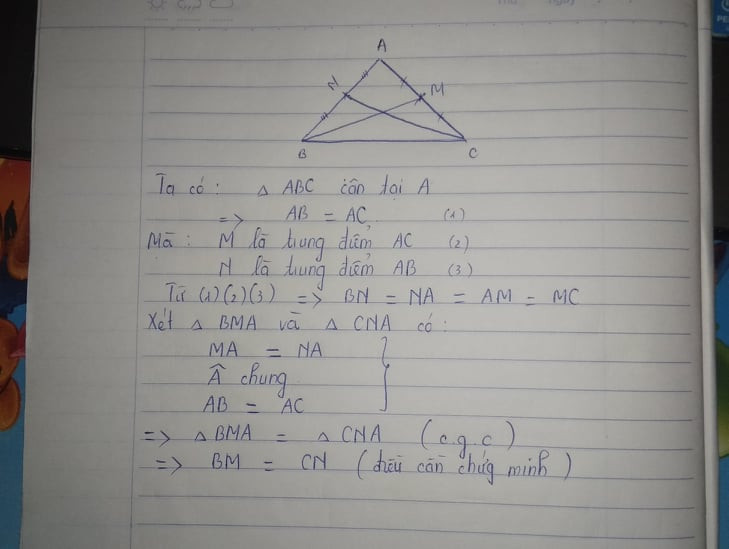 A
N
M
B
C
Ta có : △ ABC cân tại A
=> AB = AC (1)
Mà : M là trung điểm AC (2)
N là trung điểm AB (3)
Từ (1)(2)(3) => BN = NA = AM = MC
Xét △ BMA và △ CNA có :
MA = NA
Â chung
AB = AC
=> △ BMA = △ CNA (c.g.c)
=> BM = CN (điều cần chứng minh)